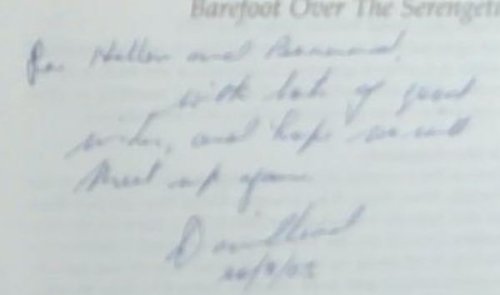 Barefoot Over The Serengeti
For Hellen and
with lots of good
wishes, and hope we will
Meet up again
David Read